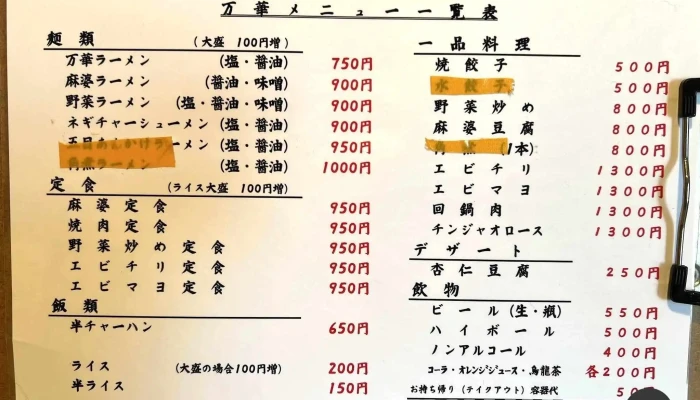 万華メニュー一覧表
麺類 (大盛 100円増)
万華ラーメン (塩・醤油) 750円
麻婆ラーメン (醤油・味噌) 900円
野菜ラーメン (塩・醤油・味噌) 900円
ネギチャーシューメン (塩・醤油) 900円
五目あんかけラーメン (塩・醤油) 950円
角煮ラーメン (塩・醤油) 1000円
定食 (ライス大盛 100円増)
麻婆定食 950円
焼肉定食 950円
野菜炒め定食 950円
エビチリ定食 950円
エビマヨ定食 950円
飯類
半チャーハン 650円
ライス (大盛の場合100円増) 200円
半ライス 150円
一品料理
焼餃子 500円
水餃子 500円
野菜炒め 800円
麻婆豆腐 800円
角煮 (1本) 800円
エビチリ 1300円
エビマヨ 1300円
回鍋肉 1300円
チンジャオロース 1300円
デザート
杏仁豆腐 250円
飲物
ビール (生・瓶) 550円
ハイボール 500円
ノンアルコール 400円
コーラ・オレンジジュース・烏龍茶 各200円
お持ち帰り (テイクアウト) 容器代